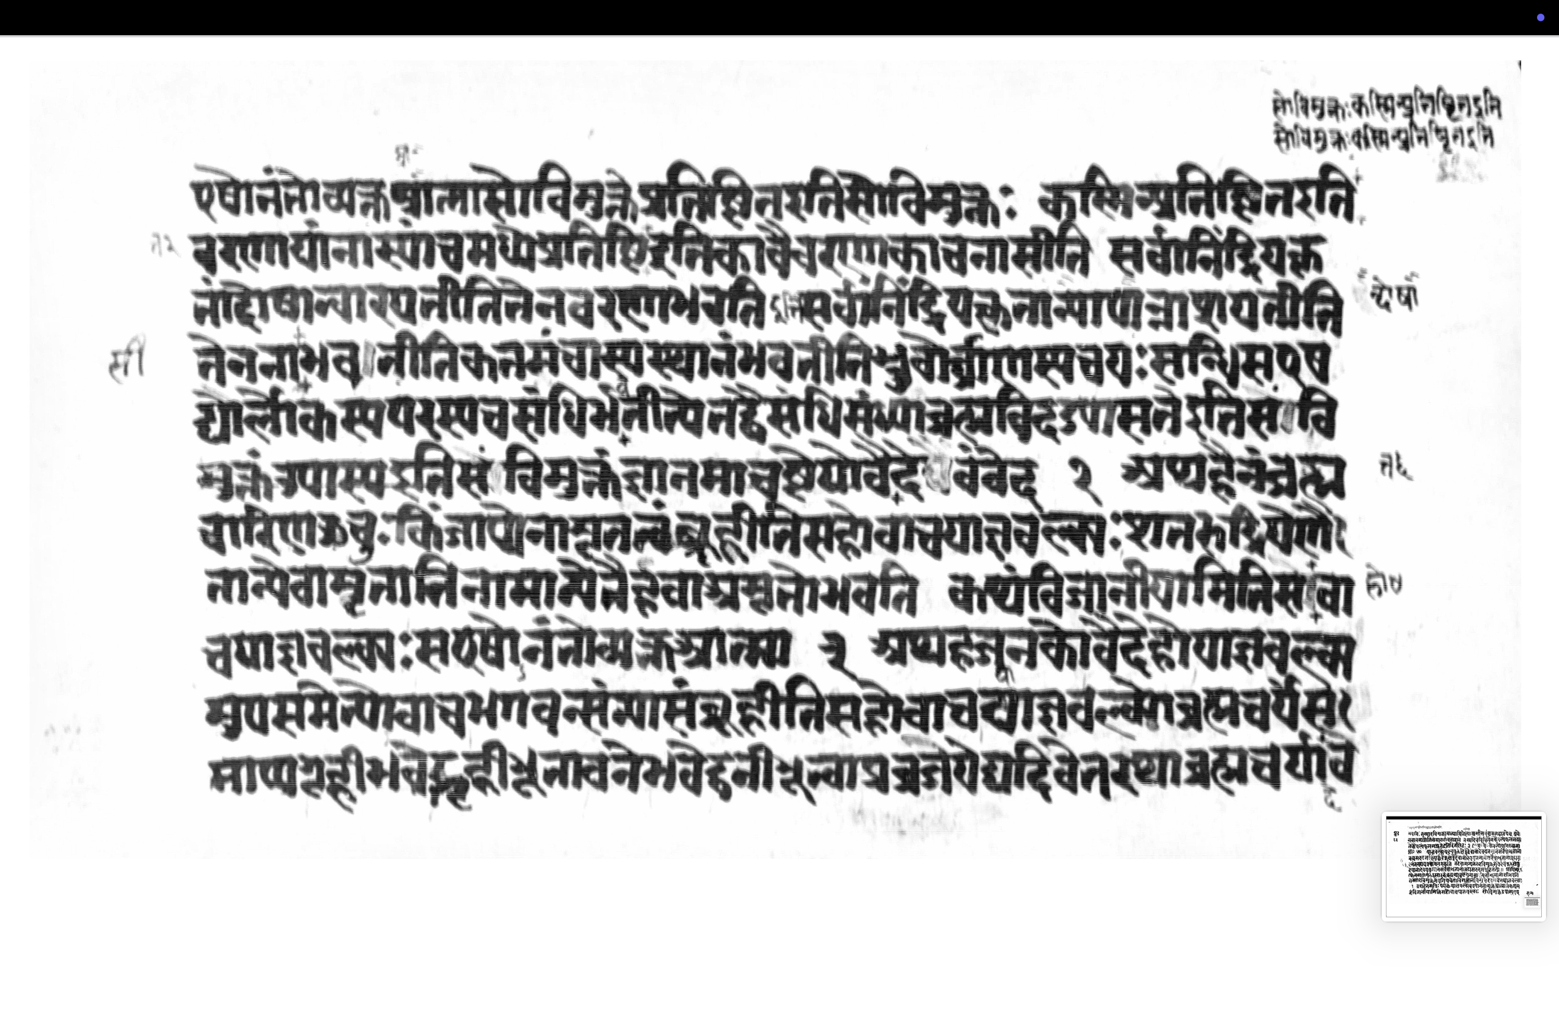 सोविमुक्तःकस्मिन्प्रतिष्ठितइति
सोविमुक्तःकस्मिन्प्रतिष्ठितइति
एषोनंतोव्यक्तआत्मासोविमुक्तेप्रतिष्ठितइतिसोविमुक्तः कस्मिन्प्रतिष्ठितइति
वरणायांनास्यांचमध्येप्रतिष्ठितइतिकावैवरणाकाचनासीति सर्वानिंद्रियकृ
तांद्दोषान्वारयतीतितेनवरणाभवति इतिसर्वानिंद्रियकृतान्पापान्नाशयतीति
न्दोषां
सी
तेननाभवतीतिकतमंचास्यस्थानंभवतीतिभ्रुवोर्घ्राणस्यचयःसन्धिःसएष
द्योर्लोकस्यपरस्यचसंधिर्भवतीत्येतद्वैसंधिसंध्यांब्रह्मविदउपासतेइतिसोवि
मुक्तंउपास्यइतिसोविमुक्तंज्ञानमाचष्टेयोवैदेवंवेद २ अथहैनंब्रह्म
चारिणऊचुःकिंजाप्येनामृतत्वंब्रूहीतिसहोवाचयाज्ञवल्क्यःशतरुद्रियेणे
तान्येवामृतानिनामान्येतैर्हवाअमृतोभवति कथंविजानीयामितिसवा
होव
चयाज्ञवल्क्यःसएषोनंतोव्यक्तआत्मा ३ अथहजनकोवैदेहोयाज्ञवल्क्य
मुपसमेत्योवाचभगवन्संन्यासंब्रूहीतिसहोवाचयाज्ञवल्क्योब्रह्मचर्यंस
माप्यगृहीभवेद्गृहीभूत्वावनीभवेद्वनीभूत्वाप्रव्रजेद्यदिवेतरथाब्रह्मचर्यादे